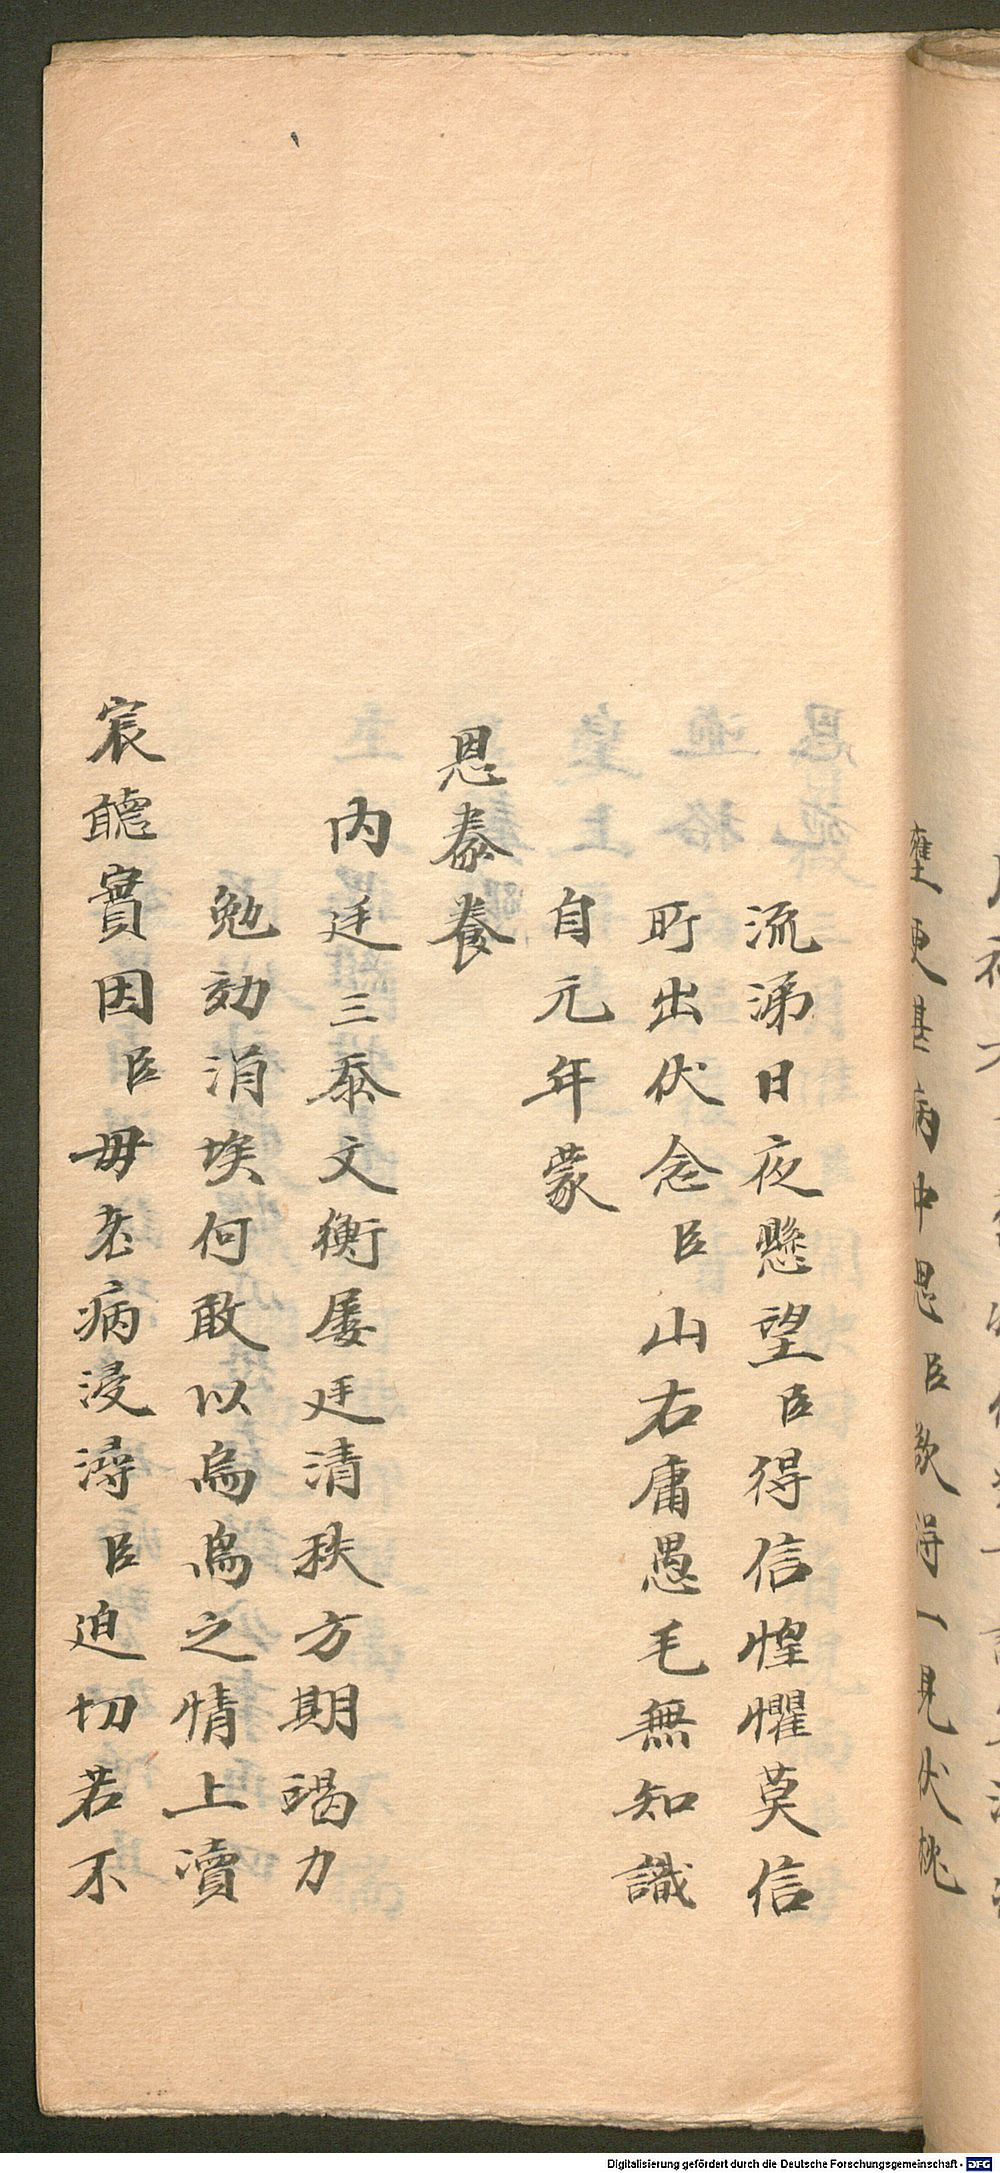 壅更甚病中思臣欲得一見伏枕
流涕日夜懸望臣得信惶懼莫信
所出伏念臣山右庸愚毛無知識
自元年蒙
恩豢養
内廷三泰文衡屡廷清秩方期竭力
勉効涓埃何敢以烏烏之情上瀆
宸聽實因臣毋老病浸潯臣迫切若不
Digitalisierung gefördert durch die Deutsche Forschungsgemeinschaft - DFG